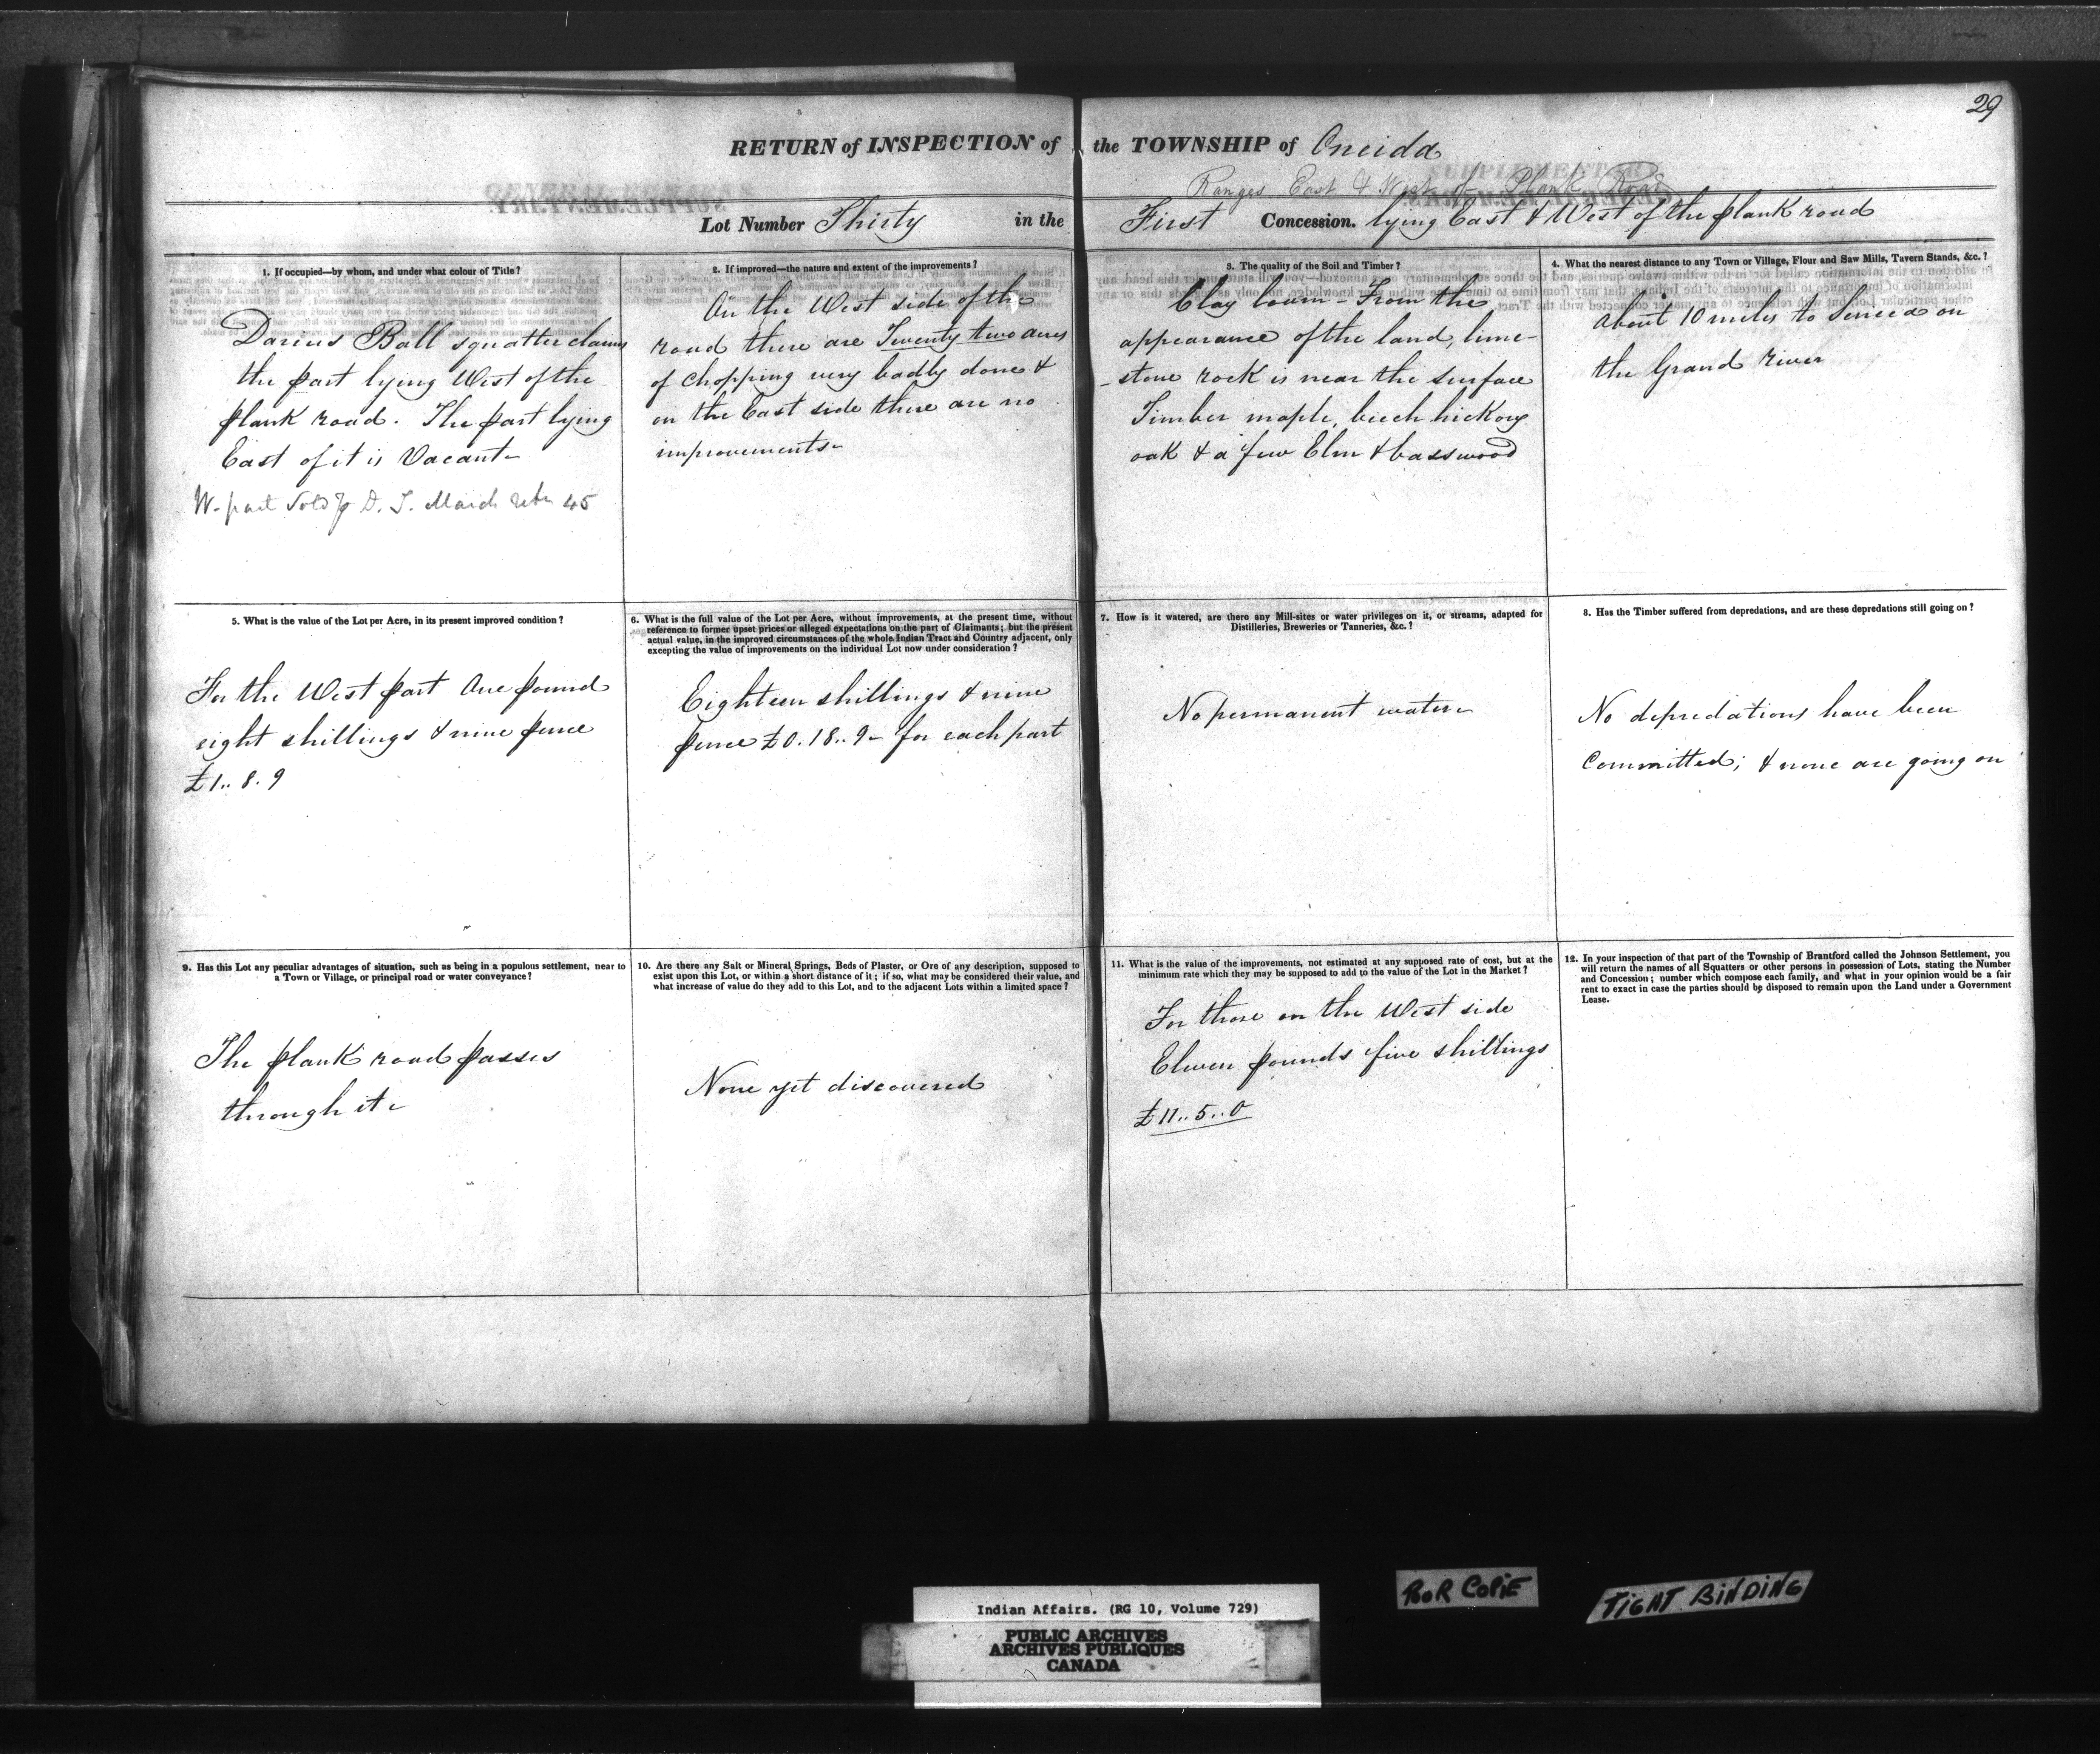 29
RETURN of INSPECTION of the TOWNSHIP of Oneida
Ranges East & West of Plank Road
Lot Number Thirty in the First Concession. lying East & West of the plank road
1. If occupied—by whom, and under what colour of Title?
Darius Ball squatter claims
the part lying West of the
plank road. The part lying
East of it is Vacant
W. part Sold to D. T.
45
2. If improved—the nature and extent of the improvements?
On the West side of the
road there are Twenty two acres
of chopping very badly done &
on the East side there are no
improvements
3. The quality of the Soil and Timber?
Clay loam - From the
appearance of the land, lime-
-stone rock is near the surface
Timber maple, beech hickory
oak & a few Elm & basswood
4. What the nearest distance to any Town or Village, Flour and Saw Mills, Tavern Stands, &c.?
About 10 miles to Seneca on
the Grand River
5. What is the value of the Lot per Acre, in its present improved condition?
For the West part One pound
eight shillings & nine pence
£1.. 8. 9
6. What is the full value of the Lot per Acre, without improvements, at the present time, without
reference to former upset prices or alleged expectations on the part of Claimants; but the present
actual value, in the improved circumstances of the whole Indian Tract and Country adjacent, only
excepting the value of improvements on the individual Lot now under consideration?
Eighteen shillings & nine
pence £0. 18.. 9- for each part
7. How is it watered, are there any Mill-sites or water privileges on it, or streams, adapted for
Distilleries, Breweries or Tanneries, &c.?
No permanent water
8. Has the Timber suffered from depredations, and are these depredations still going on?
No depredations have been
Committed; & none are going on
9. Has this Lot any peculiar advantages of situation, such as being in a populous settlement, near to
a Town or Village, or principal road or water conveyance?
The plank road passes
through it
10. Are there any Salt or Mineral Springs, Beds of Plaster, or Ore of any description, supposed to
exist upon this Lot, or within a short distance of it; if so, what may be considered their value, and
what increase of value do they add to this Lot, and to the adjacent Lots within a limited space?
None yet discovered
11. What is the value of the improvements, not estimated at any supposed rate of cost, but at the
minimum rate which they may be supposed to add to the value of the Lot in the Market?
For those on the West side
Eleven pounds five shillings
£11.. 5.. 0
12. In your inspection of that part of the Township of Brantford called the Johnson Settlement, you
will return the names of all Squatters or other persons in possession of Lots, stating the Number
and Concession; number which compose each family, and what in your opinion would be a fair
rent to exact in case the parties should be disposed to remain upon the Land under a Government
Lease.
POOR COPIE
TIGHT BINDING
Indian Affairs. (RG 10, Volume 729)
PUBLIC ARCHIVES
ARCHIVES PUBLIQUES
CANADA